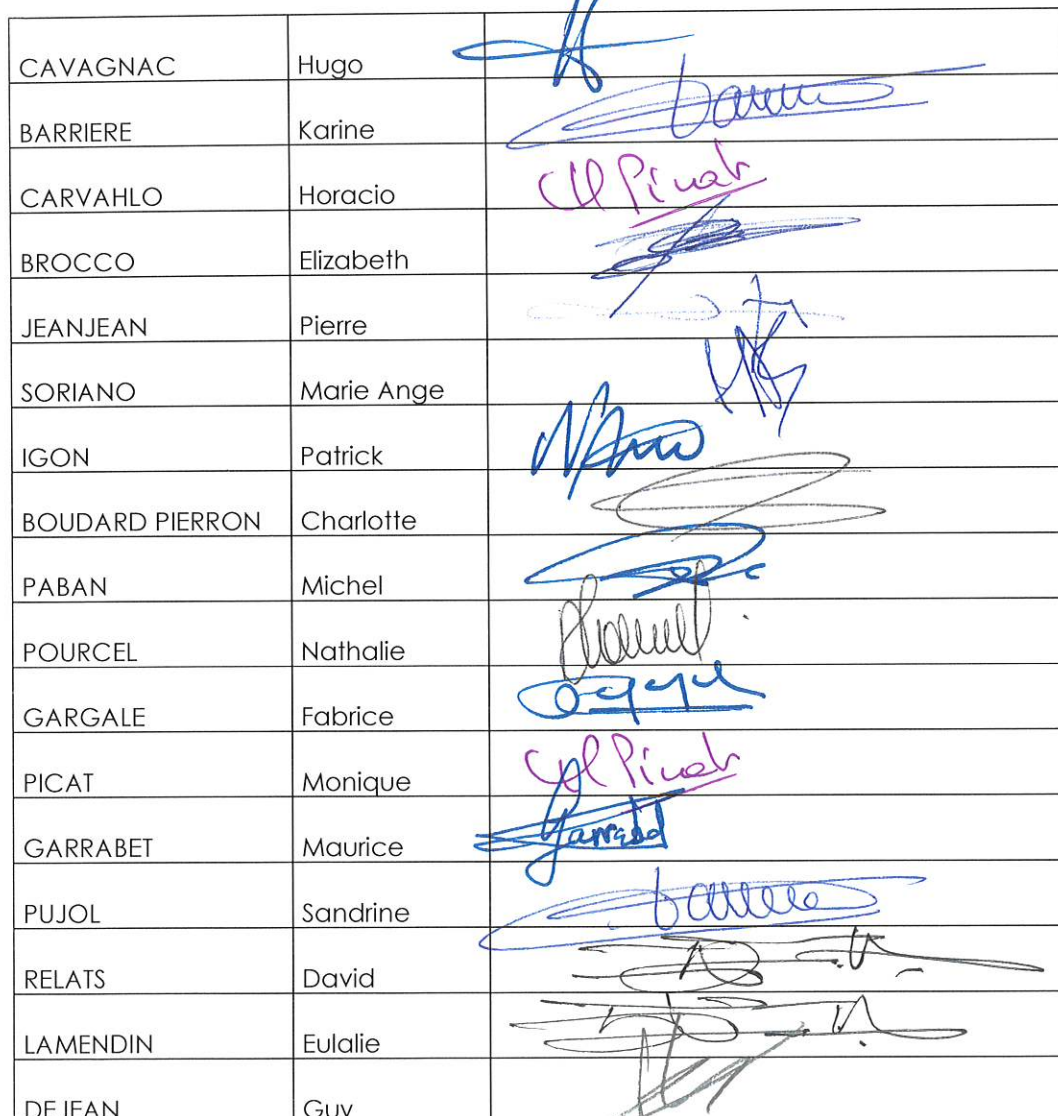 CAVAGNAC Hugo
BARRIERE Karine
CARVAHLO Horacio Picat
BROCCO Elizabeth
JEANJEAN Pierre
SORIANO Marie Ange
IGON Patrick
BOUDARD PIERRON Charlotte
PABAN Michel
POURCEL Nathalie
GARGALE Fabrice
PICAT Monique Picat
GARRABET Maurice
PUJOL Sandrine
RELATS David
LAMENDIN Eulalie
DEJEAN Guy